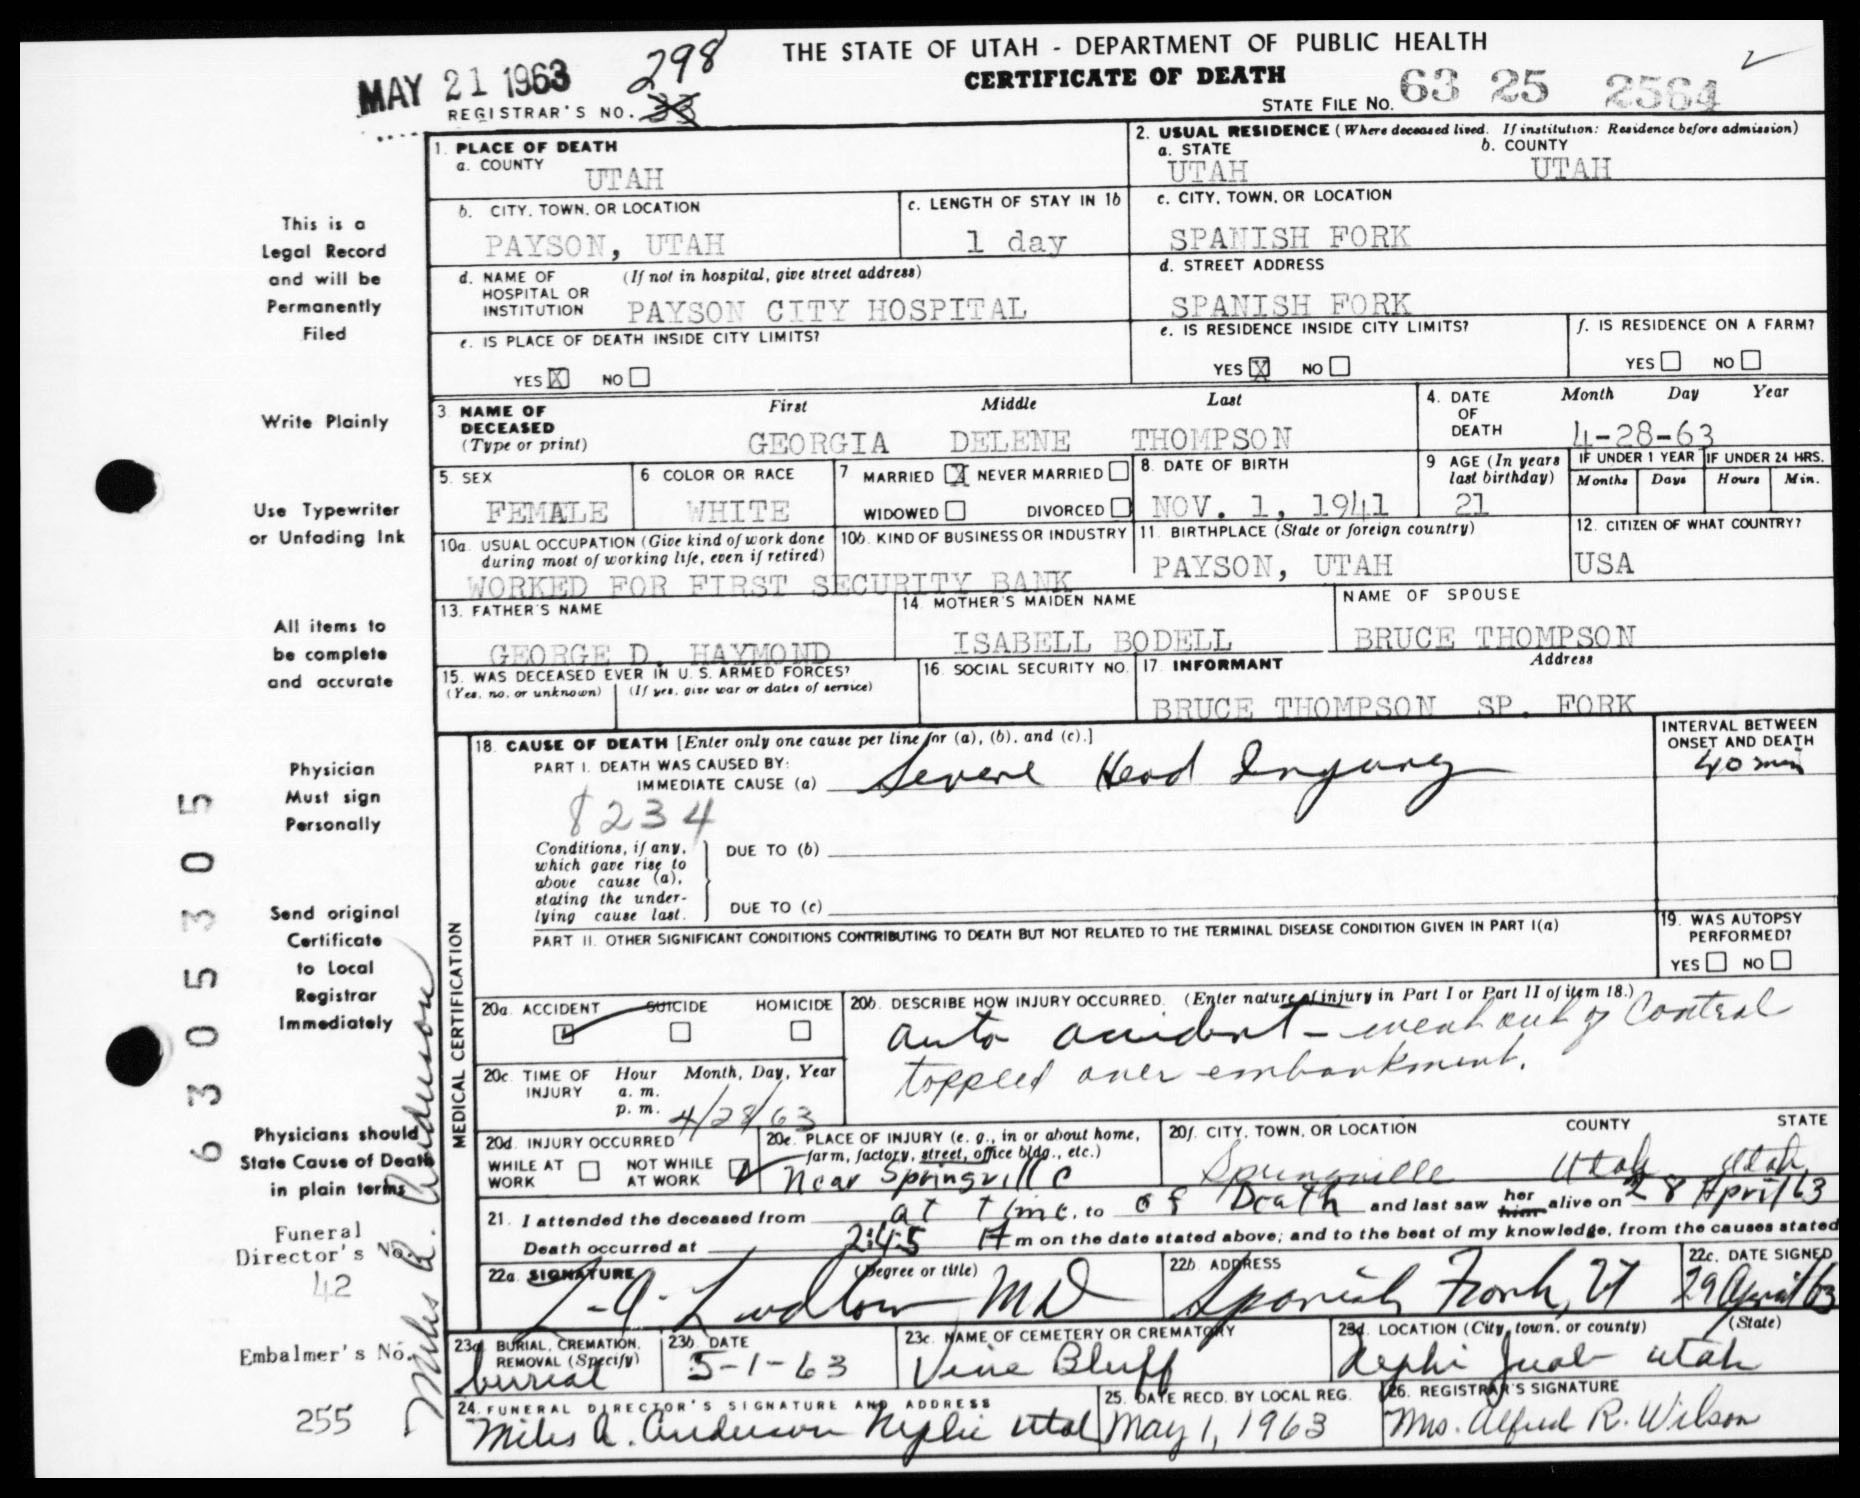 THE STATE OF UTAH - DEPARTMENT OF PUBLIC HEALTH
CERTIFICATE OF DEATH
MAY 21 1963
298
REGISTRAR'S NO. 33
STATE FILE NO. 63 25 2564
This is a
Legal Record
and will be
Permanently
Filed
Write Plainly
Use Typewriter
or Unfading Ink
All items to
be complete
and accurate
Physician
Must sign
Personally
Send original
Certificate
to Local
Registrar
Immediately
Physicians should
State Cause of Death
in plain terms
Funeral
Director's No.
42
Embalmer's No.
255
6305305
Miles A. Anderson
1. PLACE OF DEATH
a. COUNTY
UTAH
b. CITY, TOWN, OR LOCATION
PAYSON, UTAH
c. LENGTH OF STAY IN 1b
1 day
d. NAME OF HOSPITAL OR INSTITUTION (If not in hospital, give street address)
PAYSON CITY HOSPITAL
e. IS PLACE OF DEATH INSIDE CITY LIMITS?
YES X NO
2. USUAL RESIDENCE (Where deceased lived. If institution: Residence before admission)
a. STATE
UTAH
b. COUNTY
UTAH
c. CITY, TOWN, OR LOCATION
SPANISH FORK
d. STREET ADDRESS
SPANISH FORK
e. IS RESIDENCE INSIDE CITY LIMITS?
YES X NO
f. IS RESIDENCE ON A FARM?
YES NO
3. NAME OF DECEASED (Type or print)
First Middle Last
GEORGIA DELENE THOMPSON
4. DATE OF DEATH Month Day Year
4-28-63
5. SEX
FEMALE
6 COLOR OR RACE
WHITE
7 MARRIED X NEVER MARRIED
WIDOWED DIVORCED
8. DATE OF BIRTH
NOV. 1, 1941
9 AGE (In years last birthday)
21
IF UNDER 1 YEAR IF UNDER 24 HRS.
Months Days Hours Min.
10a. USUAL OCCUPATION (Give kind of work done during most of working life, even if retired)
10b. KIND OF BUSINESS OR INDUSTRY
WORKED FOR FIRST SECURITY BANK
11. BIRTHPLACE (State or foreign country)
PAYSON, UTAH
12. CITIZEN OF WHAT COUNTRY?
USA
13. FATHER'S NAME
GEORGE D. HAYMOND
14. MOTHER'S MAIDEN NAME
ISABELL BODELL
NAME OF SPOUSE
BRUCE THOMPSON
15. WAS DECEASED EVER IN U.S. ARMED FORCES?
(Yes, no, or unknown) (If yes, give war or dates of service)
16. SOCIAL SECURITY NO.
17. INFORMANT Address
BRUCE THOMPSON SP. FORK
MEDICAL CERTIFICATION
18. CAUSE OF DEATH [Enter only one cause per line for (a), (b), and (c).]
PART I. DEATH WAS CAUSED BY:
IMMEDIATE CAUSE (a) Severe Head Ingury
8234
INTERVAL BETWEEN ONSET AND DEATH
40 min
Conditions, if any, which gave rise to above cause (a), stating the underlying cause last.
DUE TO (b)
DUE TO (c)
PART II. OTHER SIGNIFICANT CONDITIONS CONTRIBUTING TO DEATH BUT NOT RELATED TO THE TERMINAL DISEASE CONDITION GIVEN IN PART I(a)
19. WAS AUTOPSY PERFORMED?
YES NO
20a. ACCIDENT SUICIDE HOMICIDE
20b. DESCRIBE HOW INJURY OCCURRED. (Enter nature of injury in Part I or Part II of item 18.)
auto accident - went out of Control
toppled over embankment.
20c. TIME OF INJURY Hour Month, Day, Year
a. m.
p. m. 4/28/63
20d. INJURY OCCURRED
WHILE AT WORK NOT WHILE AT WORK
20e. PLACE OF INJURY (e. g., in or about home, farm, factory, street, office bldg., etc.)
Near Springville
20f. CITY, TOWN, OR LOCATION COUNTY STATE
Springville Utah Utah
21. I attended the deceased from at time, to of Death and last saw her him alive on 28 April 63
Death occurred at 2:45 A m on the date stated above; and to the best of my knowledge, from the causes stated
22a. SIGNATURE (Degree or title)
L. A. Ludlow MD
22b. ADDRESS
Spanish Fork, Ut
22c. DATE SIGNED
29 April 63
23a. BURIAL, CREMATION, REMOVAL (Specify)
burial
23b. DATE
5-1-63
23c. NAME OF CEMETERY OR CREMATORY
Vine Bluff
23d. LOCATION (City, town, or county) (State)
Nephi Juab Utah
24. FUNERAL DIRECTOR'S SIGNATURE AND ADDRESS
Miles A. Anderson Nephi Utah
25. DATE RECD. BY LOCAL REG.
May 1, 1963
26. REGISTRAR'S SIGNATURE
Mrs. Alfred R. Wilson